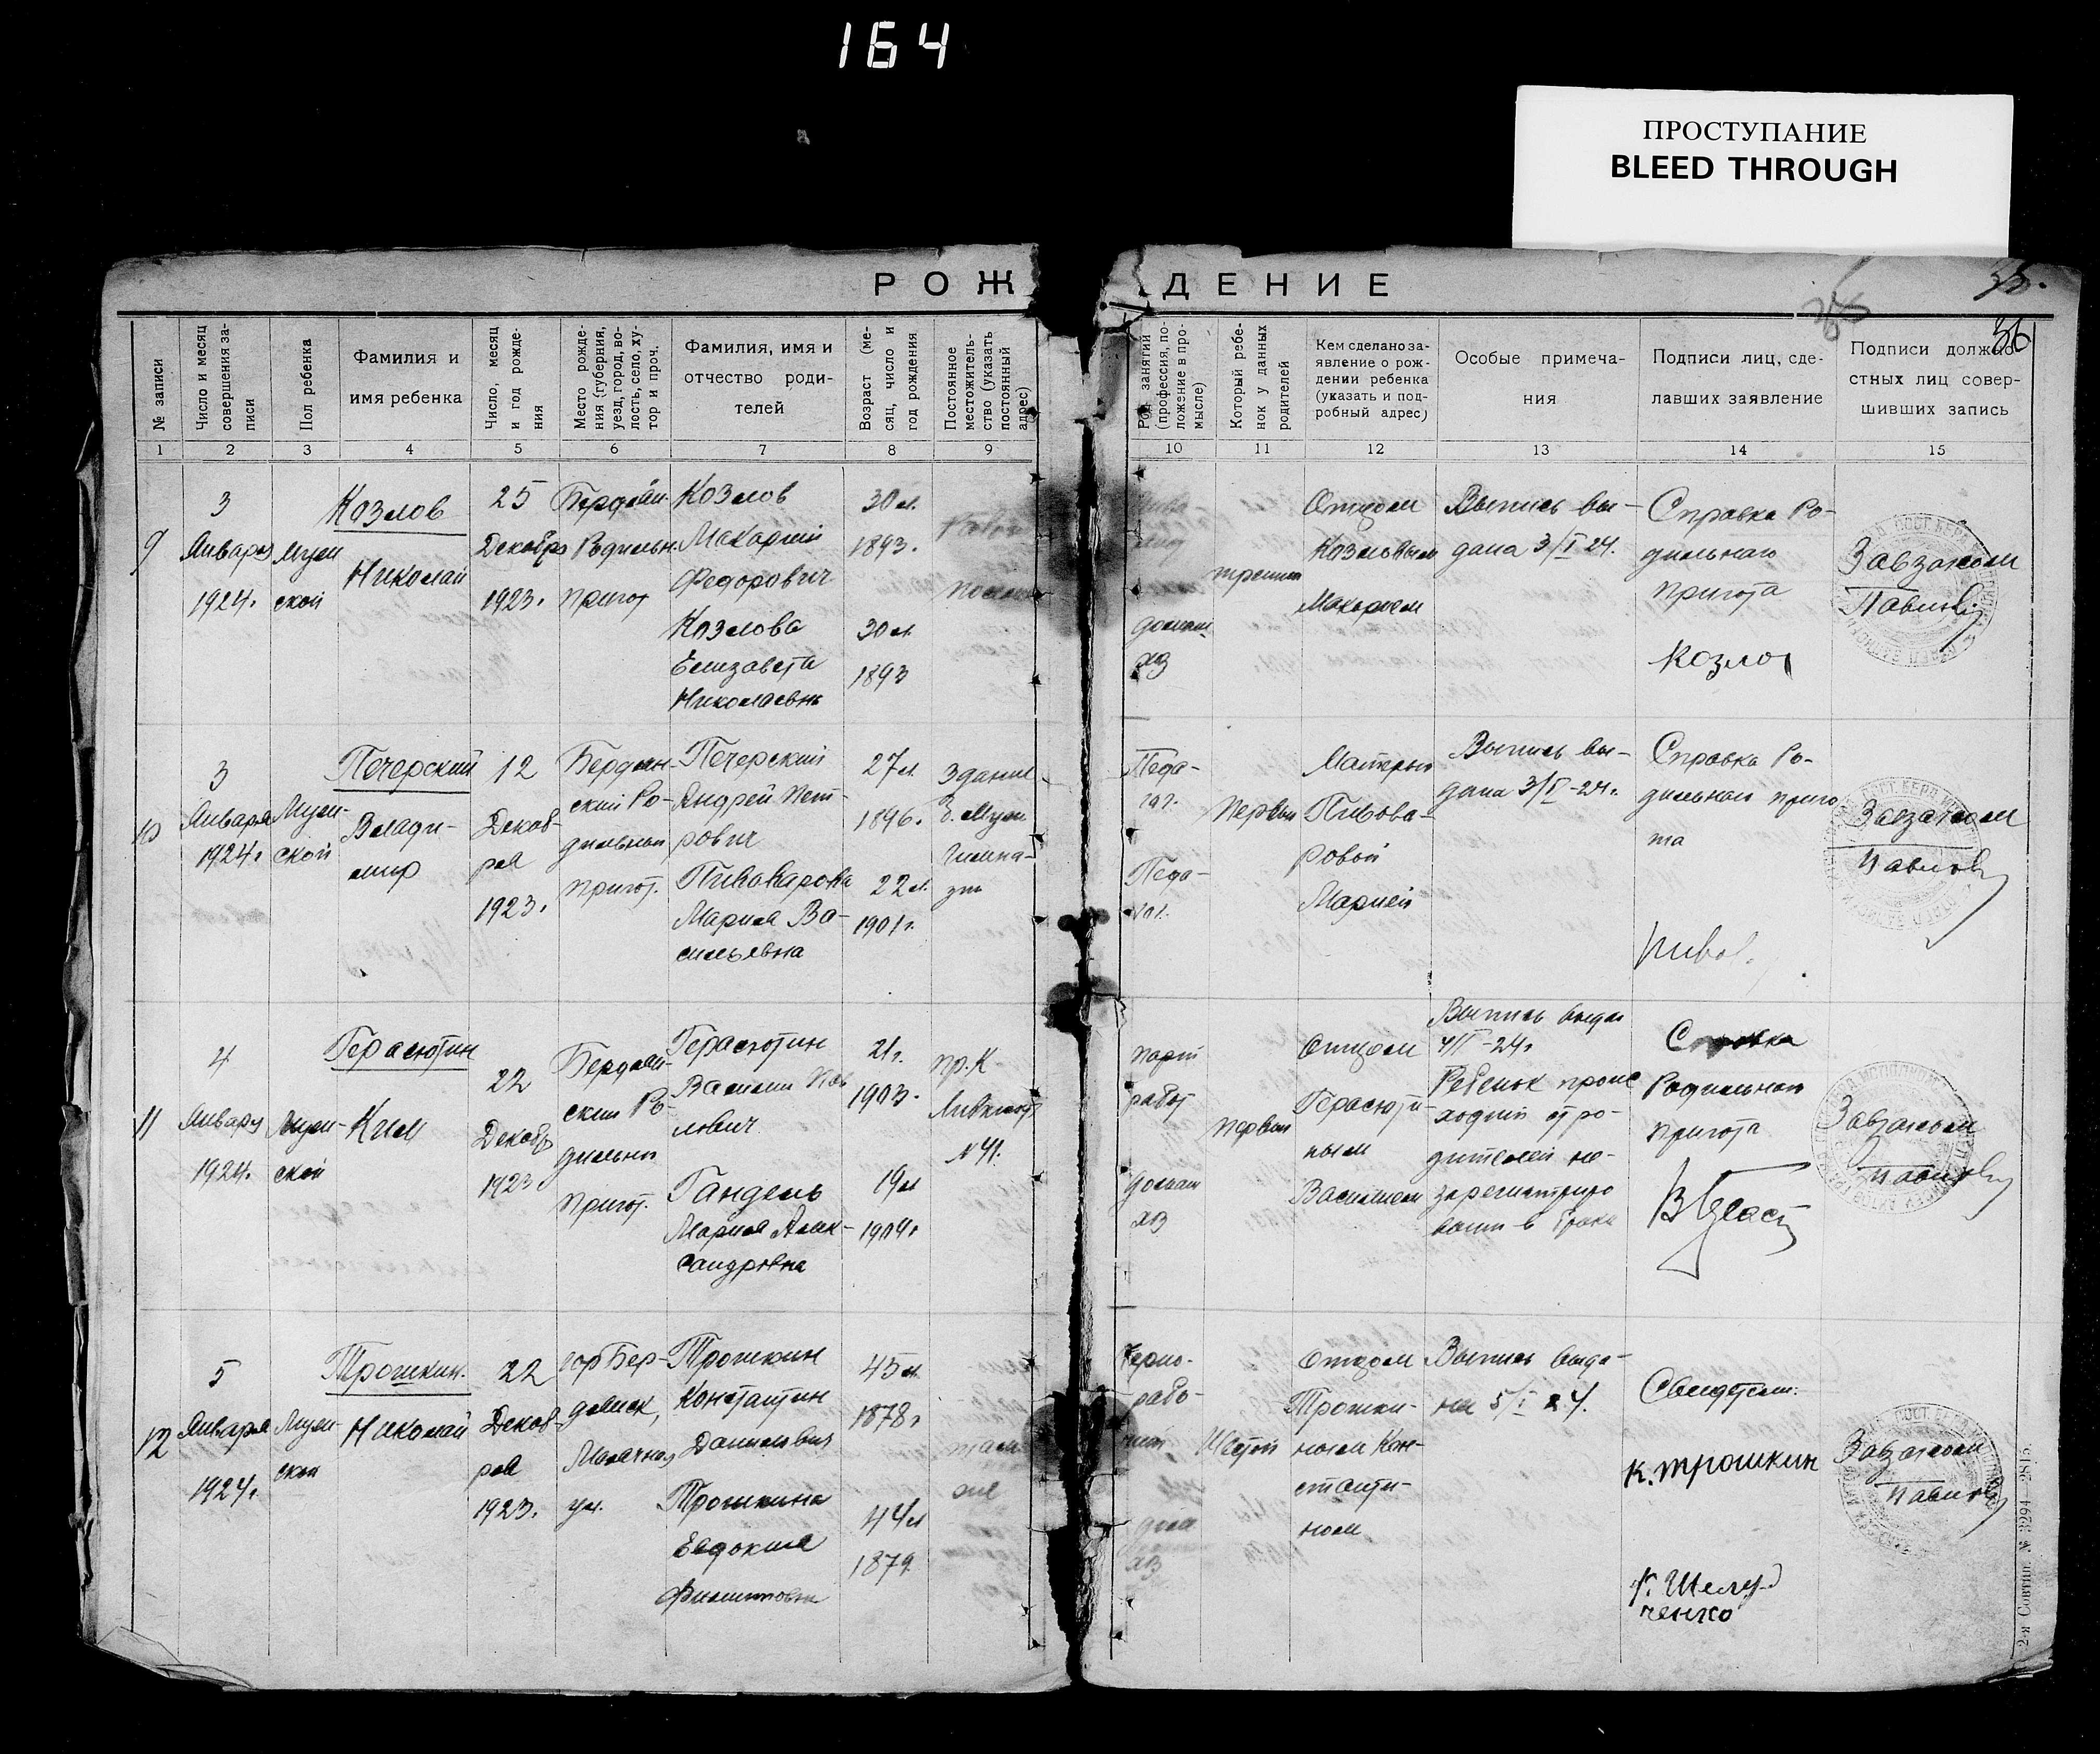 164
ПРОСТУПАНИЕ
BLEED THROUGH
РОЖДЕНИЕ
35.
36
№ записи
Число и месяц совершения записи
Пол ребенка
Фамилия и
имя ребенка
Число, месяц и год рождения
Место рождения (губерния, уезд, город, волость, село, хутор и проч.
Фамилия, имя и
отчество роди-
телей
Возраст (месяц, число и год рождения
Постоянное местожительство (указать постоянный адрес)
Род занятий (профессия, положение в промысле)
Который ребенок у данных родителей
Кем сделано за-
явление о рож-
дении ребенка
(указать и под-
робный адрес)
Особые примеча-
ния
Подписи лиц, сде-
лавших заявление
Подписи должно-
стных лиц совер-
шивших запись
1 2 3 4 5 6 7 8 9 10 11 12 13 14 15
9
3
Января
1924.
Муж
ской
Козлов
Николай
25
Декабря
1923.
Бердян.
Родильн.
приют
Козлов
Макарий
Федорович
Козлова
Елизавета
Николаевн
30 л.
1893.
30 л.
1893
домаш.
хоз
третий
Отцом
Козловым
Макарием
Выпись вы-
дана 3/I 24.
Справка Ро-
дильнаго
приюта
Козлов
Завзагсом
Павлов
10
3
Января
1924.
Муж-
ской
Печерский
Влади-
мир
12
Декаб-
ря
1923.
Бердян-
ский Ро-
дильный
приют.
Печерский
Андрей Пет-
рович
Пивоварова
Мария Ва-
сильевна
27 л.
1896.
22 л.
1901 г.
Здание
б. Муж
гимна-
зии
Педа-
гог.
Педа-
гог.
Первый
Матерью
Пивова-
ровой
Марией
Выпись вы-
дана 3/I -24 г.
Справка Ро-
дильнаго прию
та
Пивов.
Завзагсом
Павлов
11
4
Января
1924.
Муж-
ской
Герасютин
Ким
22
Декабр
1923
Бердян-
ский Ро-
дильный
приют.
Герасютин
Василий Пав
лович
Гандель
Мария Алек-
сандровна
21 г.
1903.
19 л
1904 г
пр. К
Либкнехт
№ 41.
парт
работ
домаш
хоз
первый
Отцом
Герасюти-
ным
Василием
Выпись выдан
4/I -24 г
Ребенок проис
ходит от ро-
дителей не-
зарегистриро
ванн в браке
Справка
Родильнаго
приюта
Завзагсом
Павлов
12
5
Января
1924.
Муж-
ской
Трошкин.
Николай
22
Декаб-
ря
1923.
гор Бер-
дянск,
Молочная
ул.
Трошкин
Константин
Данилович
Трошкина
Евдокия
Филипповн
45 л.
1878 г
44 л
1879.
Черно-
рабо-
чий
дом
хоз
Шестой
Отцом
Трошки-
ным Кон-
станти-
ном
Выпись выда-
на 5/I 24.
Свидетели:
К. Трошкин
Завзагсом
Павлов
Г. Шелуд
ченко